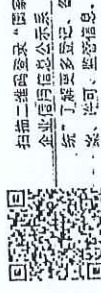 扫描二维码登录“国家
企业信用信息公示系
统”了解更多登记、备
案、许可、监管信息。